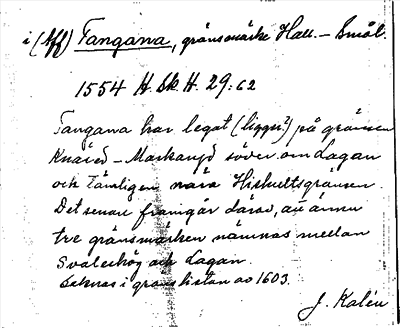 i (Aff) Tangana, gränsmärke Hall. – Smål.
1554 H. Sk. H. 29: 62
Tangana har legat (ligger?) på gränsen
Knäred – Markaryd söder om Lagan
och tämligen nära Hishultsgränsen.
Det senare framgår därav, att ännu
tre gränsmärken nämnas mellan
Svaleshög och Lagan.
Saknas i gränslistan av 1603.
J. Kalén